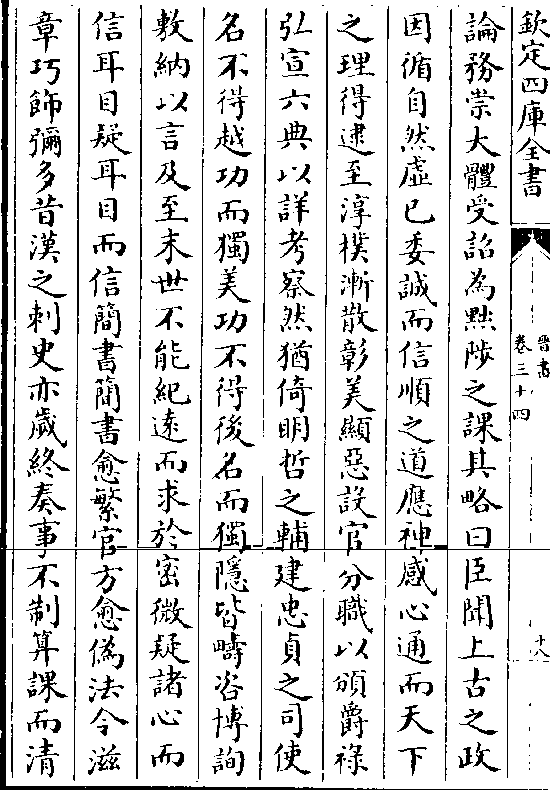 欽定四庫全書
晉書
卷三十四
十八
論務崇大體受詔為黜陟之課其略曰臣聞上古之政
因循自然虛已委誠而信順之道應神感心通而天下
之理得逮至淳樸漸散彰美顯惡設官分職以頒爵祿
弘宣六典以詳考察然猶倚明哲之輔建忠貞之司使
名不得越功而獨美功不得後名而獨隱皆疇咨博詢
敷納以言及至末世不能紀遠而求於密微疑諸心而
信耳目疑耳目而信簡書簡書愈繁官方愈偽法令滋
章巧飾彌多昔漢之刺史亦歲終奏事不制算課而清